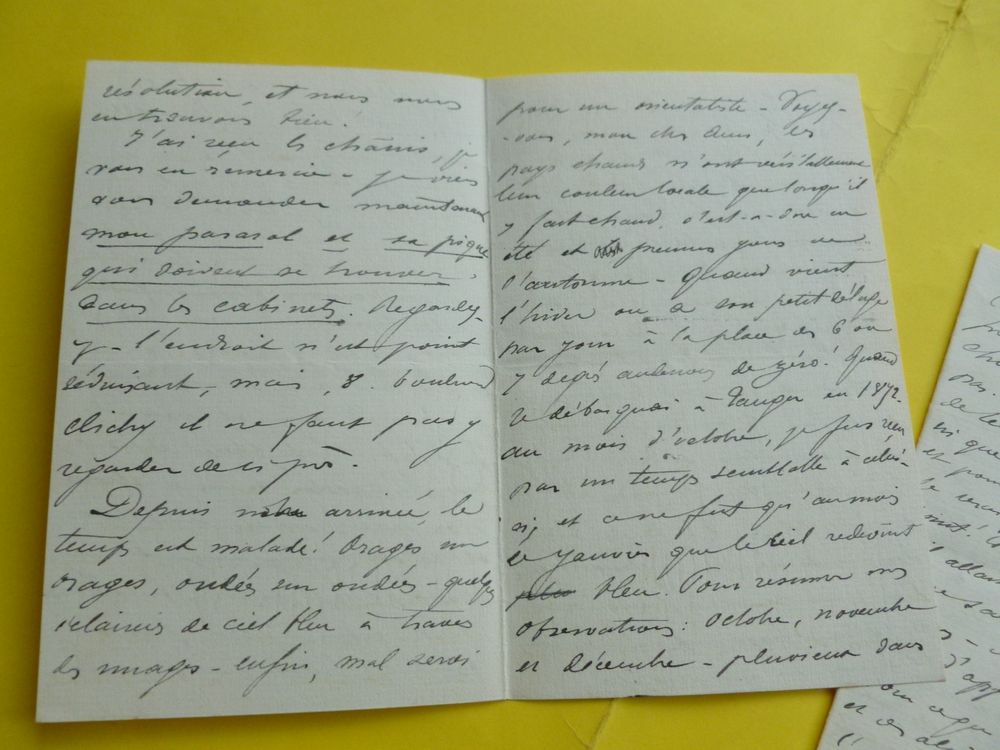 résolution, et nous nous
en trouvons bien!
J'ai reçu les châssis, je
vous en remercie - je viens
vous demander maintenant
mon parasol et sa pique
qui doivent se trouver
dans les cabinets. Regardez-
y - l'endroit n'est point
séduisant, mais, 8. boulevard
Clichy il ne faut pas y
regarder de si près.
Depuis notre arrivée, le
temps est malade! Orages sur
orages, ondées sur ondées - quelques
éclaircies de ciel bleu à travers
les nuages - enfin, mal servi
pour un orientaliste - Voyez-
-vous, mon cher ami, les
pays chauds n'ont véritablement
leur couleur locale que lorsqu'il
y fait chaud, c'est-à-dire en
été et premiers jours de
l'automne - Quand vient
l'hiver on a son petit déluge
par jour à la place des 6 ou
7 degrés au dessous de zéro! Quand
je débarquai à Tanger en 1872
au mois d'octobre, je fus reçu
par un temps semblable à celui-
ci, et ce ne fut qu'au mois
de Janvier que le ciel redevint
bleu. Pour résumer mes
observations: Octobre, novembre
et décembre - pluvieux dans